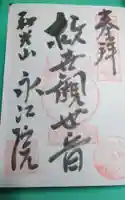 奉拝
救世観世音
和光山
永江院